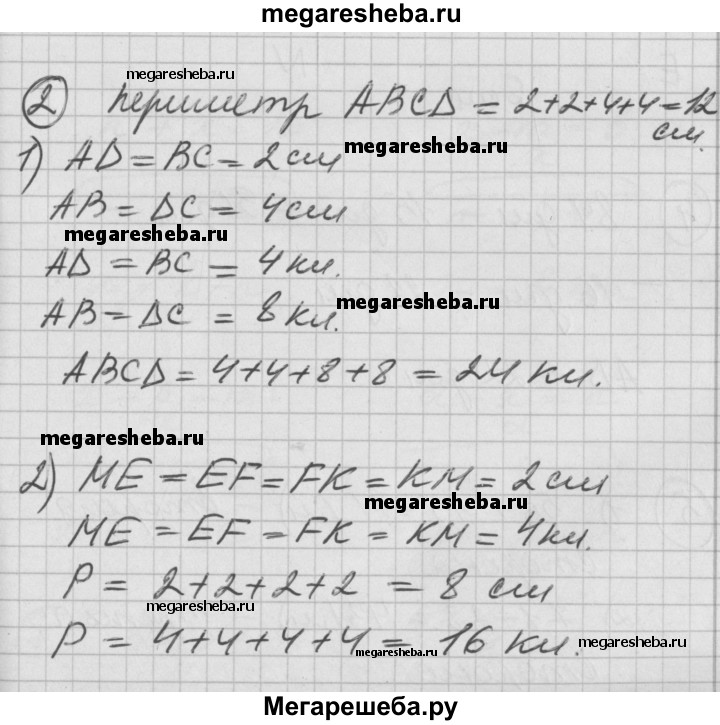 megaresheba.ru
megaresheba.ru
② периметр ABCD = 2+2+4+4=12
см.
megaresheba.ru
1) AD = BC = 2 см
AB = DC = 4 см
megaresheba.ru
AD = BC = 4 кл.
megaresheba.ru
AB = DC = 8 кл.
ABCD = 4+4+8+8 = 24 кл.
megaresheba.ru
2) ME = EF = FK = KM = 2 см
megaresheba.ru
ME = EF = FK = KM = 4 кл.
P = 2+2+2+2 = 8 см
megaresheba.ru
P = 4+4+4+4 = 16 кл.
megaresheba.ru
megaresheba.ru
Мегарешеба.ру